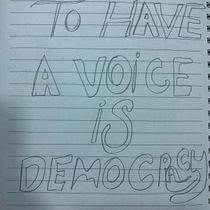 TO HAVE
A VOiCE
iS
DEMOCRACY